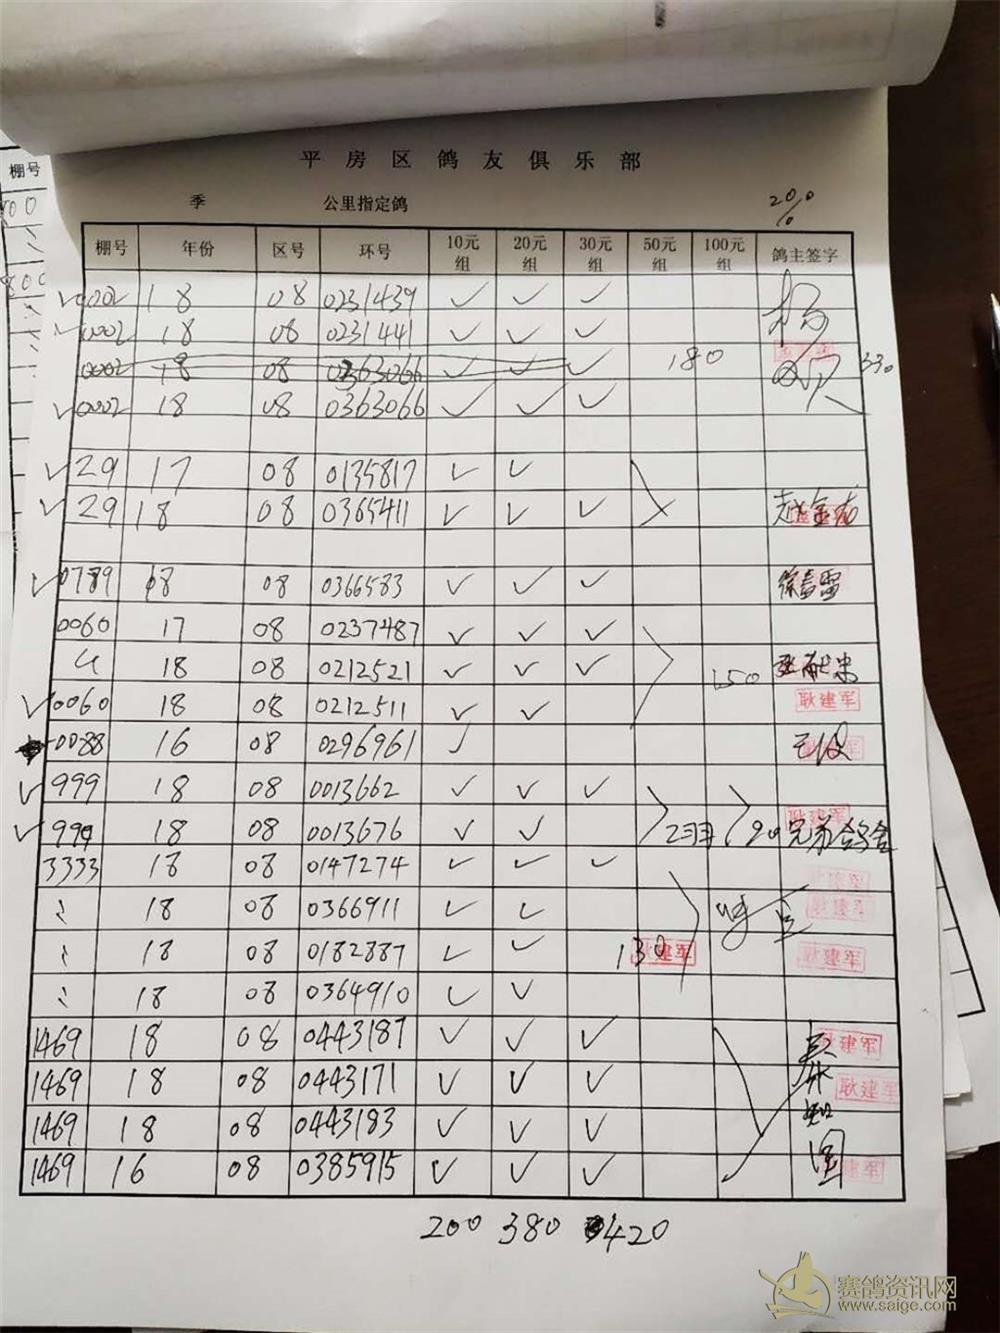 棚号
平房区鸽友俱乐部
季 公里指定鸽
20%
棚号 年份 区号 环号 10元组 20元组 30元组 50元组 100元组 鸽主签字
✓ 0002 18 08 0231439 ✓ ✓ ✓ 杨
✓ 0002 18 08 0231441 ✓ ✓ ✓
0002 18 08 0363066 ✓ ✓ ✓ 180 330
✓ 0002 18 08 0363066 ✓ ✓ ✓
✓ 29 17 08 0135817 ✓ ✓
✓ 29 18 08 0365411 ✓ ✓ ✓ 赵金龙
✓ 0789 18 08 0366583 ✓ ✓ ✓ 徐春雷
0060 17 08 0237487 ✓ ✓ ✓
18 08 0212521 ✓ ✓ ✓ 150
✓ 0060 18 08 0212511 ✓ ✓ 耿建军
0088 16 08 0296961 ✓ 王俊
✓ 999 18 08 0013662 ✓ ✓ ✓
✓ 999 18 08 0013676 ✓ ✓ 兄弟鸽舍 耿建军
3333 18 08 0147274 ✓ ✓ ✓ 耿建军
18 08 0366911 ✓ ✓ 耿建军
18 08 0182887 ✓ ✓ 130 耿建军 耿建军
18 08 0364910 ✓ ✓
1469 18 08 0443187 ✓ ✓ ✓ 耿建军
1469 18 08 0443171 ✓ ✓ ✓ 耿建军
1469 18 08 0443183 ✓ ✓ ✓
1469 16 08 0385915 ✓ ✓ ✓ 建军
200 380 420
赛鸽资讯网
www.saige.com